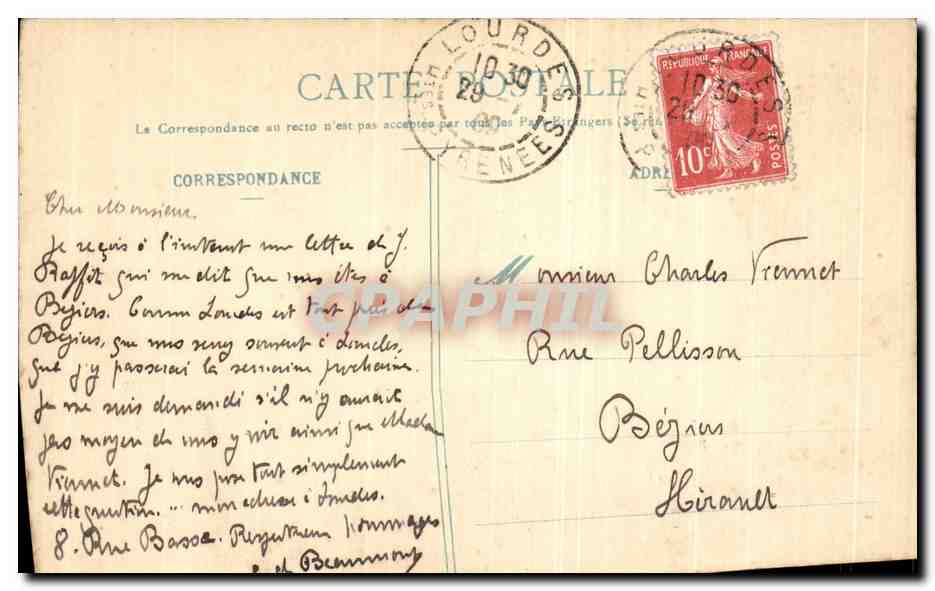 CARTE POSTALE
La Correspondance au recto n'est pas acceptée par tous les Pays Etrangers
CORRESPONDANCE
LOURDES
10 30
29
Htes PYRENEES
LOURDES
10 30
REPUBLIQUE FRANÇAISE
10c
POSTES
Cher Monsieur.
Je reçois à l'instant une lettre de J.
Raffit qui me dit que vous êtes à
Béziers. Comme Lourdes est tout près de
Béziers, que vous venez souvent à Lourdes,
que j'y passerai la semaine prochaine.
Je me suis demandé s'il n'y aurait
pas moyen de vous y voir ainsi que Madame
Viennet. Je vous pose tout simplement
cette question. mon adresse à Lourdes.
8. Rue Basse. Respectueux hommages
de Beaumont
Monsieur Charles Viennet
Rue Pellisson
Béziers
Hérault
CPAPHIL